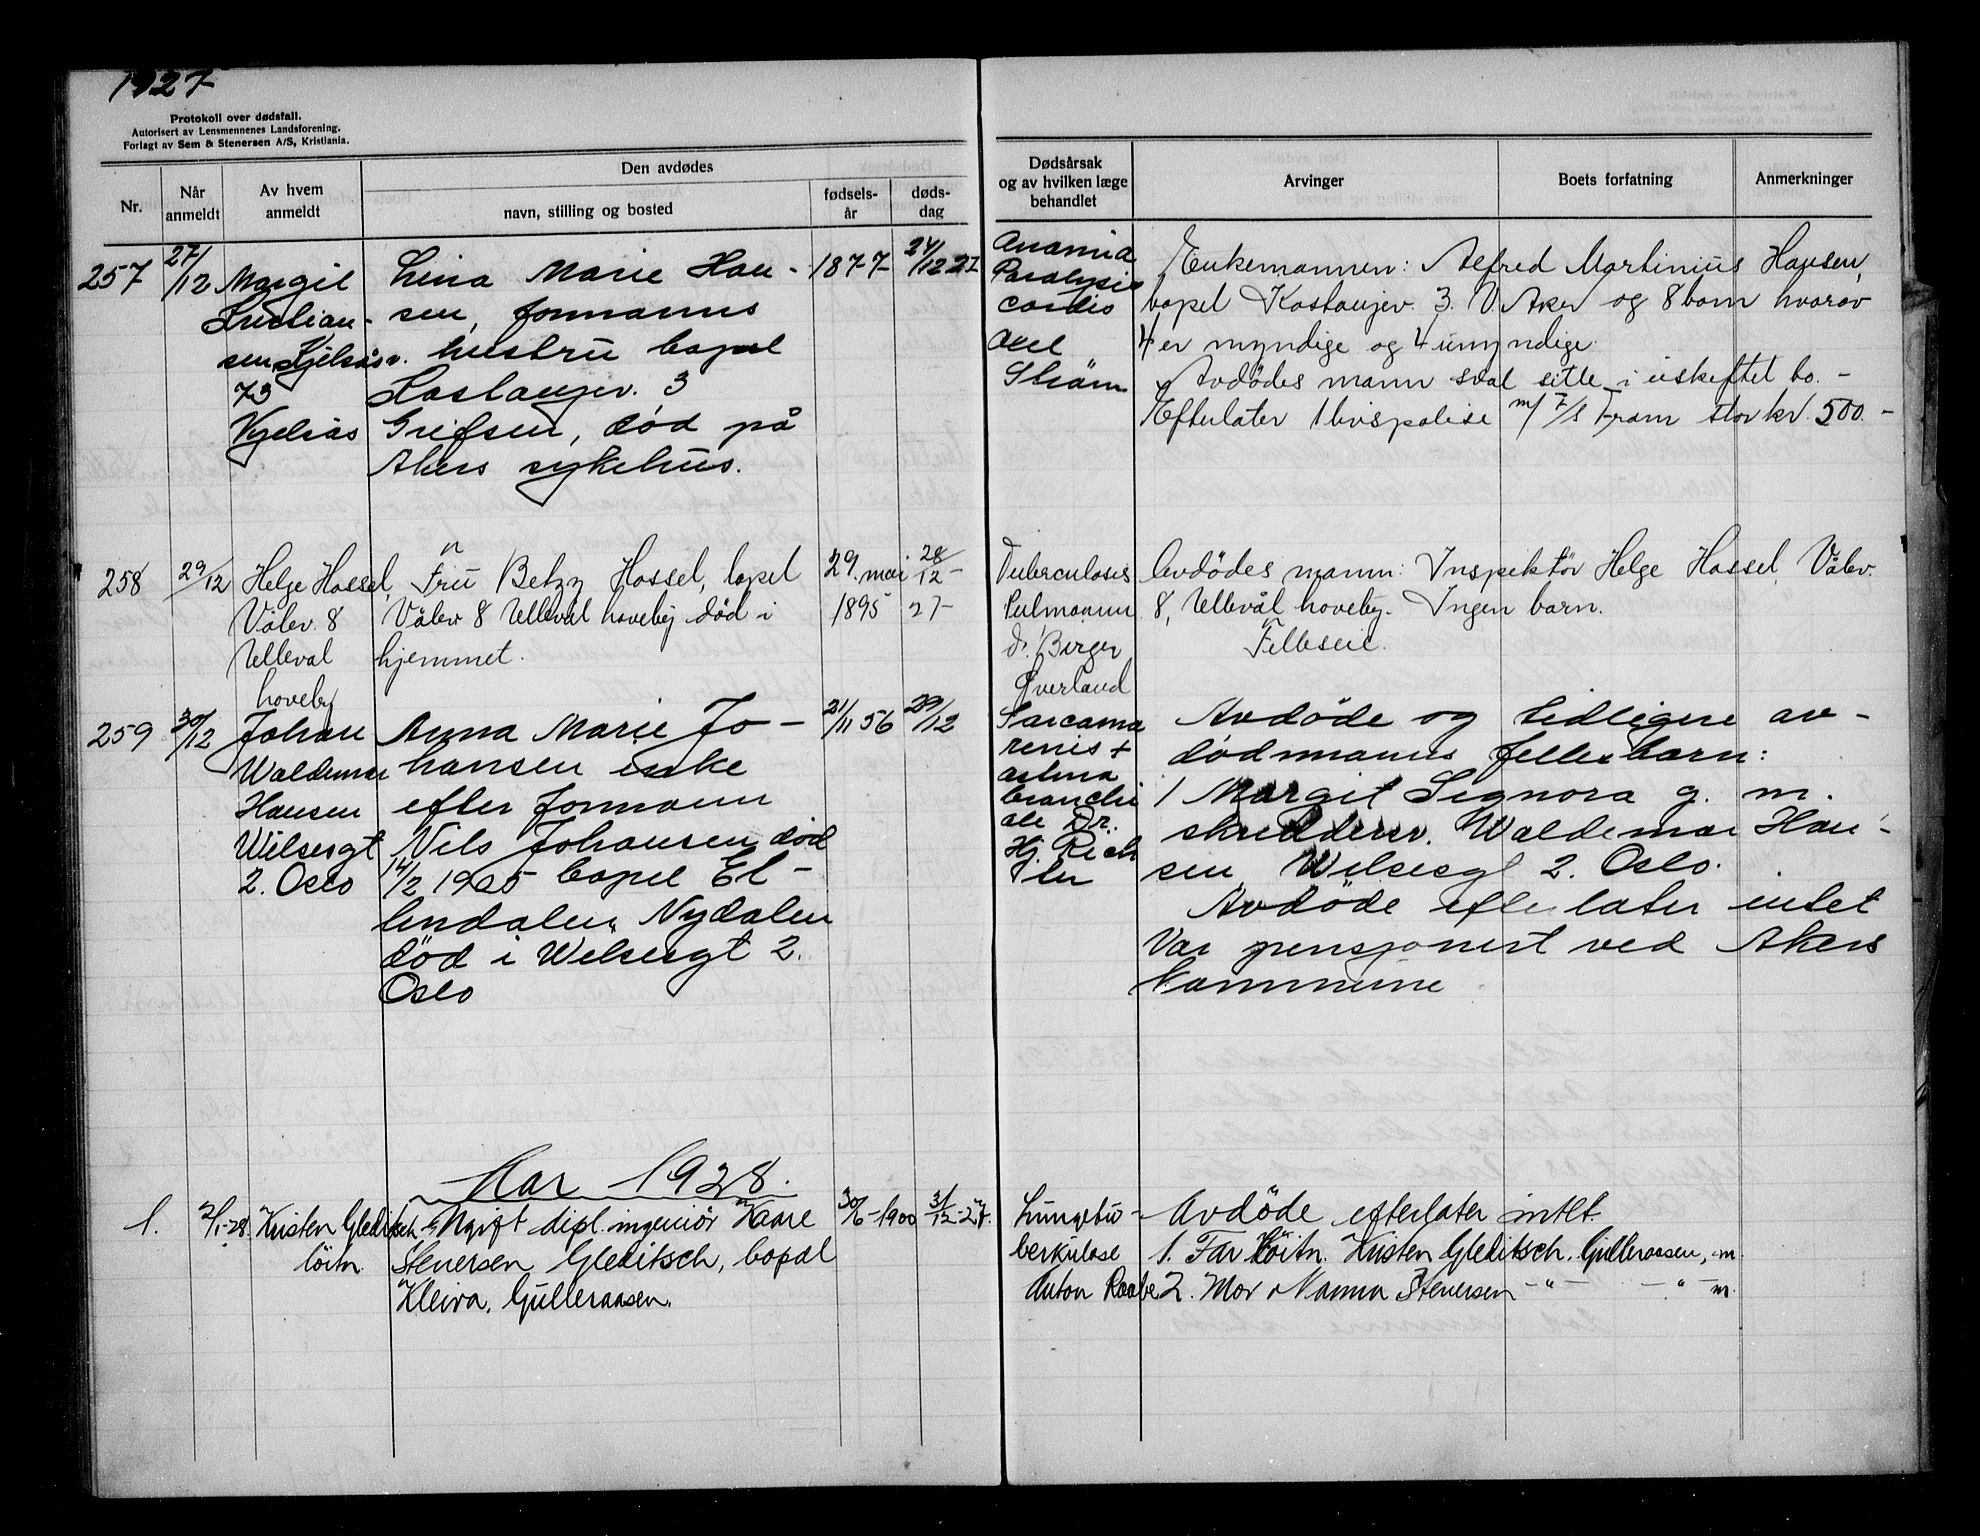 1927
Protokoll over dødsfall.
Autorisert av Lensmennenes Landsforening.
Forlagt av Sem & Stenersen A/S, Kristiania.
Nr.
Når anmeldt
Av hvem anmeldt
Den avdødes
navn, stilling og bosted
fødsels-år
døds-dag
Dødsårsak og av hvilken læge behandlet
Arvinger
Boets forfatning
Anmerkninger
257
27/12
Margit
Kjelsåsv.
73
Kjelsås
Lina Marie Han-
sen, formanns
hustru bopæl
Kastanjev. 3
Grefsen, død på
Akers sykehus.
1877
24/12 27
Anæmia
Paralysis
cordis
Axel
Strøm
Enkemannen: Alfred Martinius Hansen,
bopel Kastanjev. 3. V. Aker og 8 barn hvorav
4 er myndige og 4 umyndige.
Avdødes mann skal sitte i uskiftet bo. -
Efterlater 1 livspolise m/ 7/s Fram stor kr. 500.-
258
29/12
Helge Hassel,
Vålev. 8
Ulleval
haveby
Fru Betzy Hassel, bopel
Vålev 8 Ulleval haveby død i
hjemmet.
29. mai
1895
28/12-
27-
Tuberculosis
Pulmonum
dr. Birger
Øverland
Avdødes mann: Inspektør Helge Hassel, Vålev.
8, Ullevål haveby. Ingen barn.
Felleseie.
259
30/12
Johan
Waldemar
Hansen
Welsesgt
2. Oslo
Anna Marie Jo-
hansen enke
efter formann
Nils Johansen død
14/2 1905 bopel El-
lendalen, Nydalen
død i Welsesgt 2.
Oslo
21/11 56
29/12
Sarcoma
renis +
astma
bronchi
ale Dr.
Hj. Rich
ter
Avdøde og tidligere av-
dødmanns fellesbarn:
1 Margit Signora g. m.
skredderer. Waldemar Han-
sen Welsesgt 2. Oslo.
Avdøde efterlater intet
Var pensjonert ved Akers
kommune
Aar 1928.
1.
2/1-28.
Kristen Gleditsch
løitn.
Ugift dipl. ingeniør Kaare
Stenersen Gleditsch, bopæl
Kleiva, Gulleraasen.
30/6-1900
31/12-27.
Lungetu-
berkulose
Anton Raabe
Avdøde efterlater intet.
1. Far Løitn. Kristen Gleditsch, Gulleraasen, m.
2. Mor Nanna Stenersen -"- -"- m.